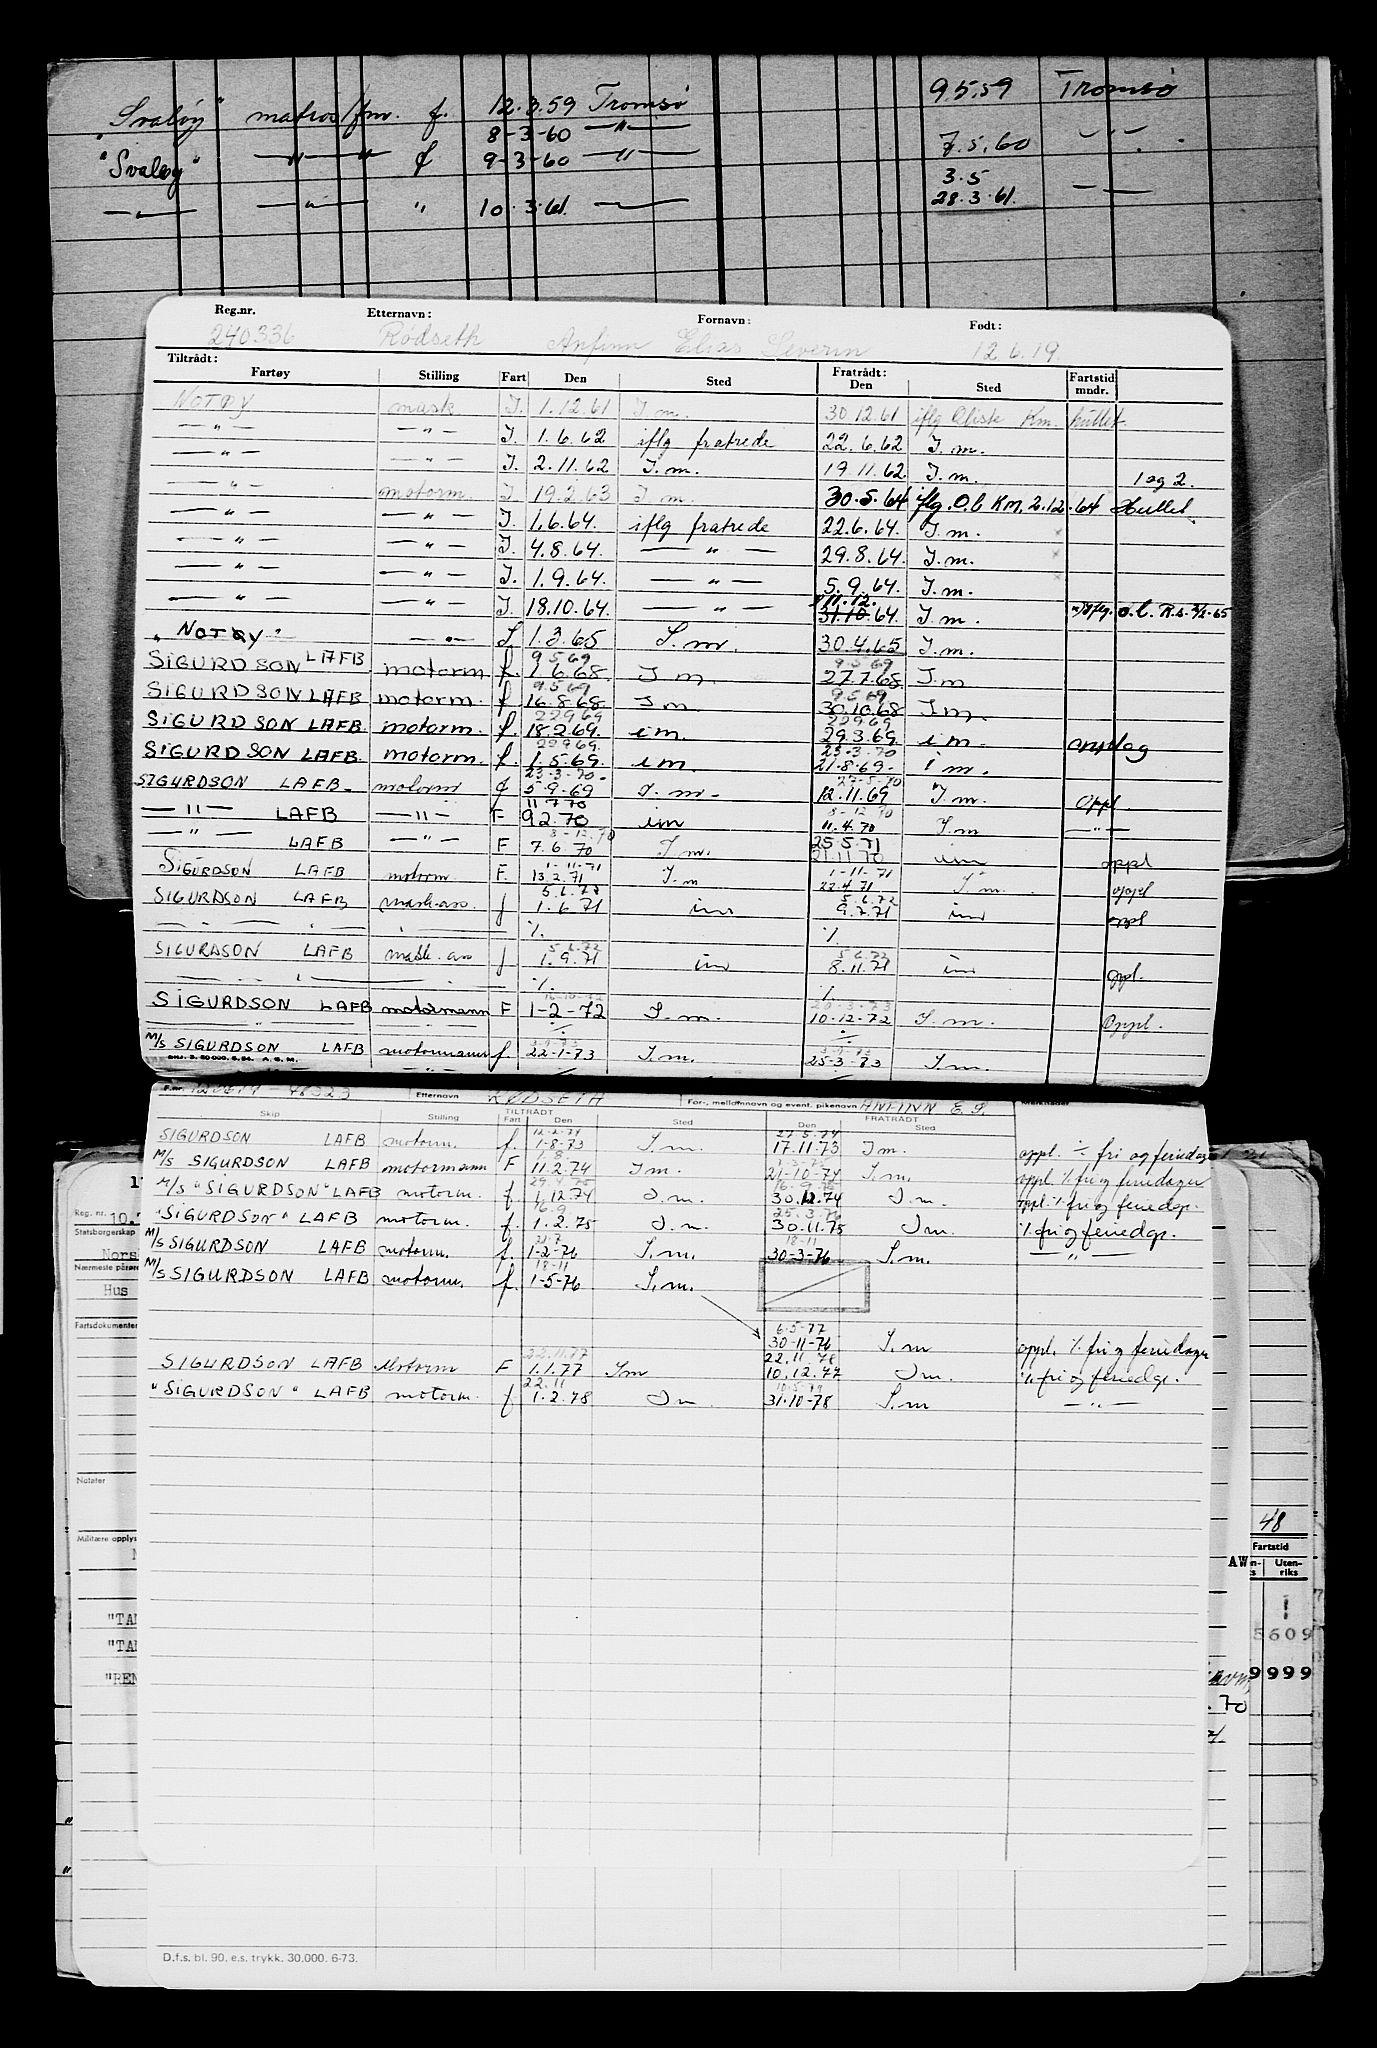 "Svaløy" matros/fm. f. 12.3.59 Tromsø 9.5.59 Tromsø
8-3-60 —"—
"Svaløy" —"—"— f 9-3-60 —"— 7.5.60 —"—
3.5
—"— —"— " 10.3.61. —— 28.3.61. ——
Reg.nr. Etternavn: Fornavn: Født:
240336 Rødseth Anfinn Elias Severin 12.6.19.
Tiltrådt: Fratrådt: Fartstid
Fartøy Stilling Fart Den Sted Den Sted mndr.
NOTØY mask. I. 1.12.61 I.m. 30.12.61 iflg Obisk Km. hullet.
—"— —"— I. 1.6.62 iflg fratrede 22.6.62 I.m.
—"— —"— I. 2.11.62 I.m. 19.11.62 I.m. 1 og 2.
—"— motorm. I. 19.2.63 I.m. 30.5.64 iflg. O.b KM. 2.12.64 Hullet.
—"— —"— I. 1.6.64. iflg fratrede 22.6.64. I.m.
—"— —"— I. 4.8.64. —"— 29.8.64. I.m.
—"— —"— I. 1.9.64. —"— 5.9.64. I.m.
11.12.
—"— —"— I. 18.10.64. —"— 31.10.64. I.m.
"NOTØY" —"— I. 1.3.65 I.m. 30.4.65 I.m.
9569 9.5 69
SIGURDSON LAFB motorm. f. 1.6.68. I m. 27.7.68. I.m
9569 9569
SIGURDSON LAFB motorm. f 16.8.68 I m. 30.10.68 I m.
22969 22969
SIGURDSON LAFB. motorm. f. 18.2.69. i m. 29.3.69. i m. opplag
22969. 23-3-70
SIGURDSON LAFB. motorm. f. 1.5.69. i m. 21.8.69- i m.
23-3-70- 27-5-70
SIGURDSON LAFB- motorm f 5-9-69 I.m- 12.11.69 I.m. oppl.
11 7 70 8-12 70
—"— LAFB —"— F 9.2.70 im 11.4.70 I.m —"—
3-12.70 25.5.71
—"— LAFB —"— F 7.6.70 I.m. 21.11.70 im oppl
1-11-71 1-11-71
SIGURDSON LAFB motorm. F. 13.2.71 I.m 22.4.71. I.m. oppl
5.6.72 5.6.72
SIGURDSON LAFB mask-ass. f 1.6.71 im 9.7.71 im oppl
—"— " " %. %.
5.6.72 5.6.72
SIGURDSON LAFB mask. ass f 1.9.71 im 8.11.71 im oppl.
%. %
20-3-73
SIGURDSON LAFB motormann F 1-2-72 I.m. 10-12-72 I.m. Oppl.
—"— —"— ÷ ÷
M/S SIGURDSON LAFB motormann f. 22-1-73 I.m. 25-3-73 I.m.
Etternavn RØDSETH For-, mellomnavn og event. pikenavn ANFINN E. S. Merknader
TILTRÅDT FRATRÅDT
Skip Stilling Fart Den Sted Den Sted
12-2-74 27-5-74
SIGURDSON LAFB motorm. f. 1-8-73 I.m. 17.11.73 I m. oppl. ÷ fri og feriedager
1.8
M/S SIGURDSON LAFB motormann F 11.2.74 I m. 21-10-74 I.m. oppl % fri og feriedager
29.4.75 16.9.75
M/S "SIGURDSON" LAFB motorm. f. 1.12.74 I.m. 30.12.74 I.m. oppl % fri og feriedgr.
16.9 25.3.76
"SIGURDSON" LAFB motorm. f. 1.2.75 I.m. 30.11.75 I m. % fri og feriedgr.
21-7 18-11
M/S SIGURDSON LAFB motorm. f. 1-2-76 I.m. 30-3-76 I.m. —"—
18-11
M/S SIGURDSON LAFB motorm. f. 1-5-76 I.m.
6.5-77
30-11-76 I.m oppl. % fri og feriedager
22.11.77 22.11.78
SIGURDSON LAFB Motorm F 1.1.77 I m 10.12.77 I m. % fri og feriedgr.
22.11 10.5.79
"SIGURDSON" LAFB motorm. f 1.2.78 I m. 31.10-78 I.m —"—
Reg. nr. 10.
Statsborgerskap
Nors
Nærmeste pårøre
Hus
Fartsdokumenter
Notater
Militære opplys
48
Fartstid
AW
Uten-
riks
"TA
"TA
5609
"REN 9999
. 70
D.f.s. bl. 90. e.s. trykk. 30.000. 6-73.